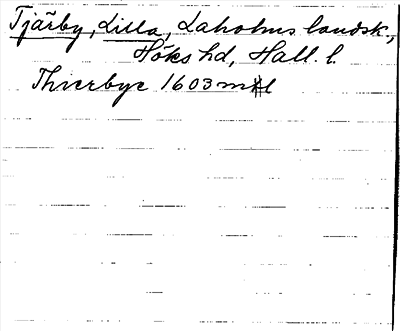 Tjärby, Lilla, Laholms landsk.,
Höks hd, Hall. l.
Thierbye 1603 mtl